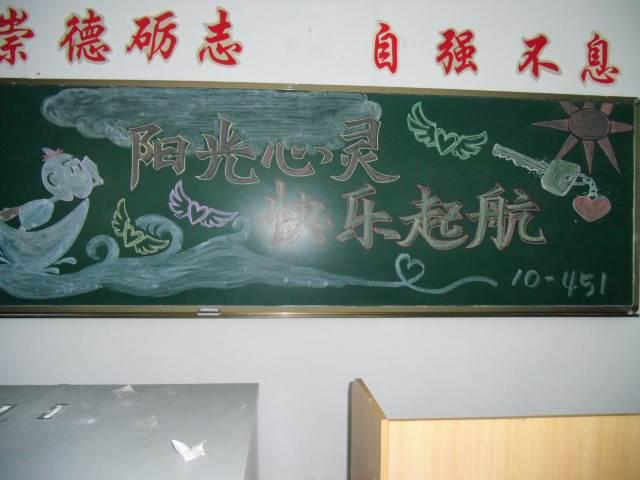 崇德砺志 自强不息
阳光心灵
快乐起航
10-451